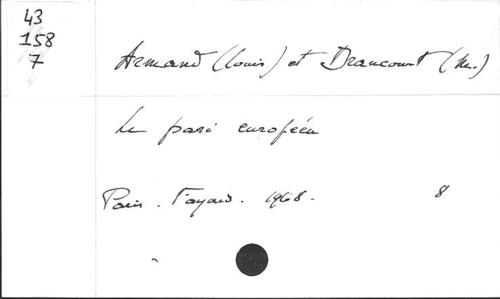 43
158
7
Armand (Louis) et Drancourt (M.)
Le pari européen
Paris. Fayard. 1968. 8